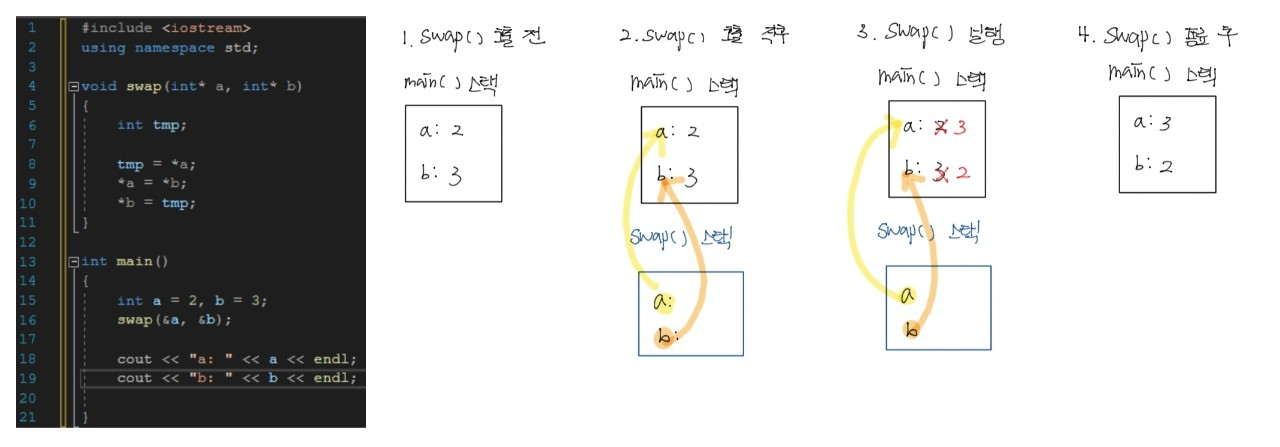 1 #include <iostream>
2 using namespace std;
3
4 void swap(int* a, int* b)
5 {
6 int tmp;
7
8 tmp = *a;
9 *a = *b;
10 *b = tmp;
11 }
12
13 int main()
14 {
15 int a = 2, b = 3;
16 swap(&a, &b);
17
18 cout << "a: " << a << endl;
19 cout << "b: " << b << endl;
20
21 }
1. Swap() 호출 전
main() 스택
a: 2
b: 3
2. Swap() 호출 직후
main() 스택
a: 2
b: 3
Swap() 스택
a:
b:
3. Swap() 실행
main() 스택
a: 2 3
b: 3 2
Swap() 스택
a
b
4. Swap() 종료 후
main() 스택
a: 3
b: 2